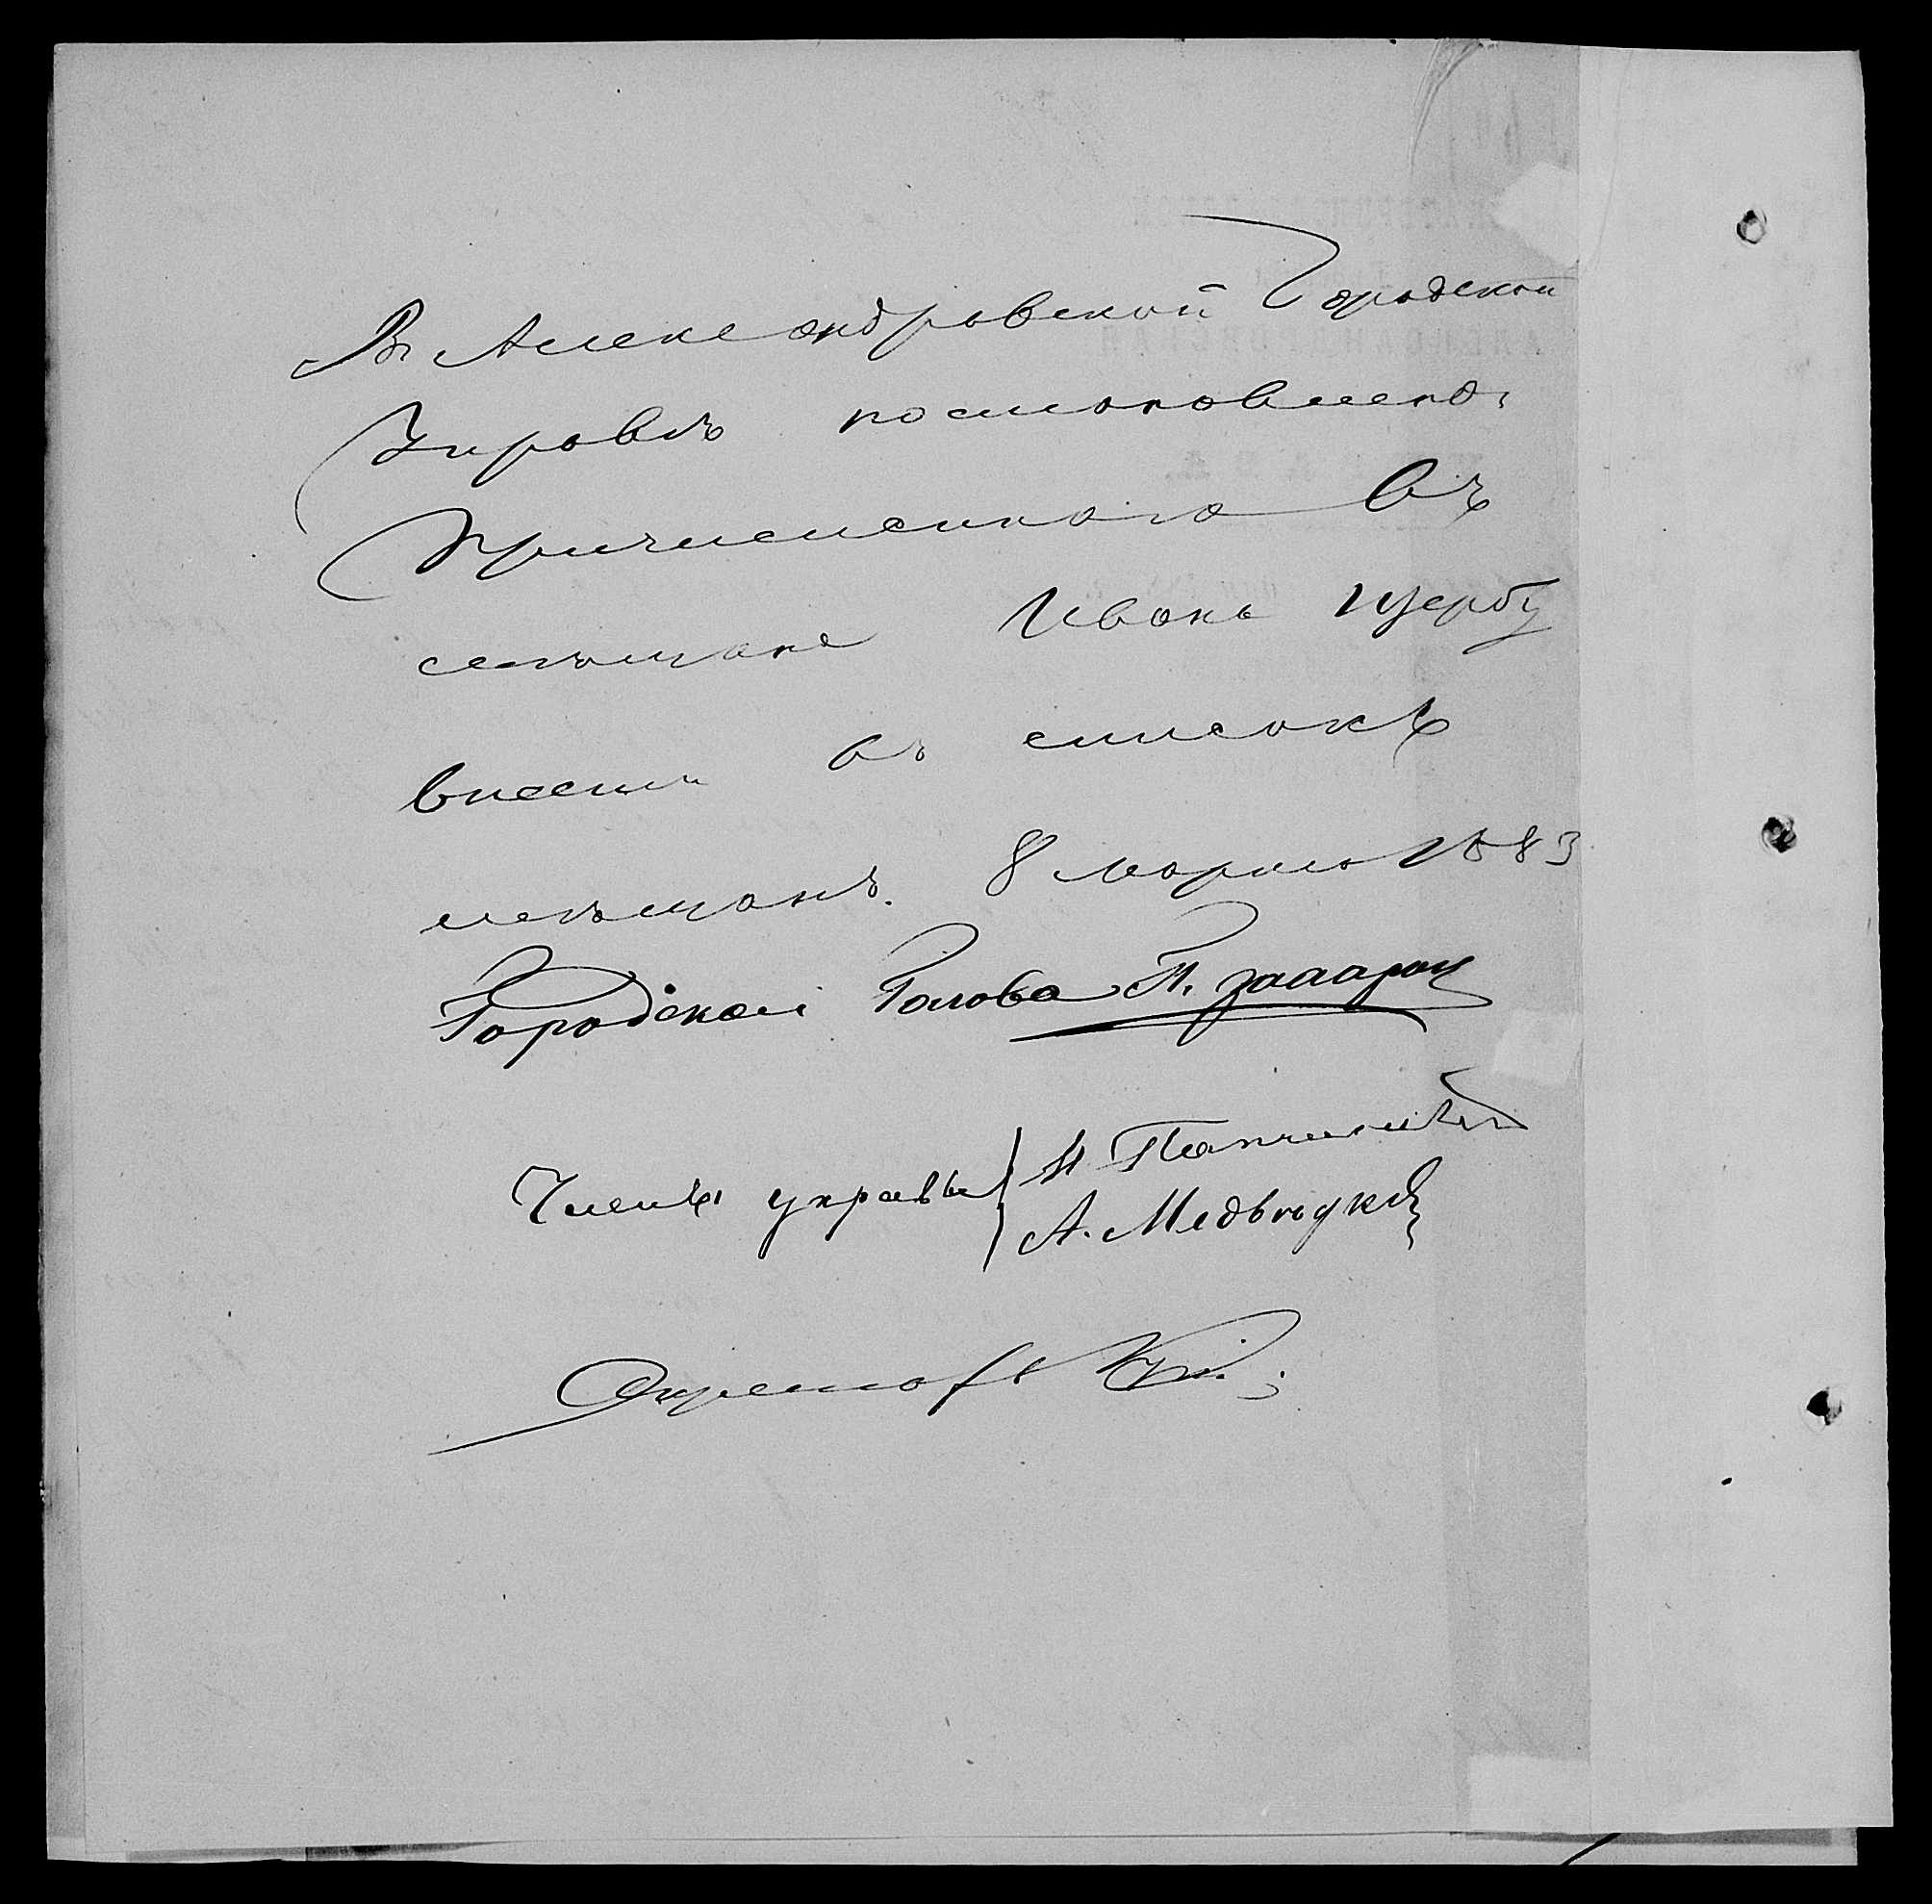 Въ Александровской Городской
Управѣ постановлено:
Причисленнаго въ
мѣщане Ивана Щербу
внести въ списокъ
мѣщанъ. 8 Марта 1883
Городской Голова Н.
Члены управы Н
А. Медвѣдков
Секретарь